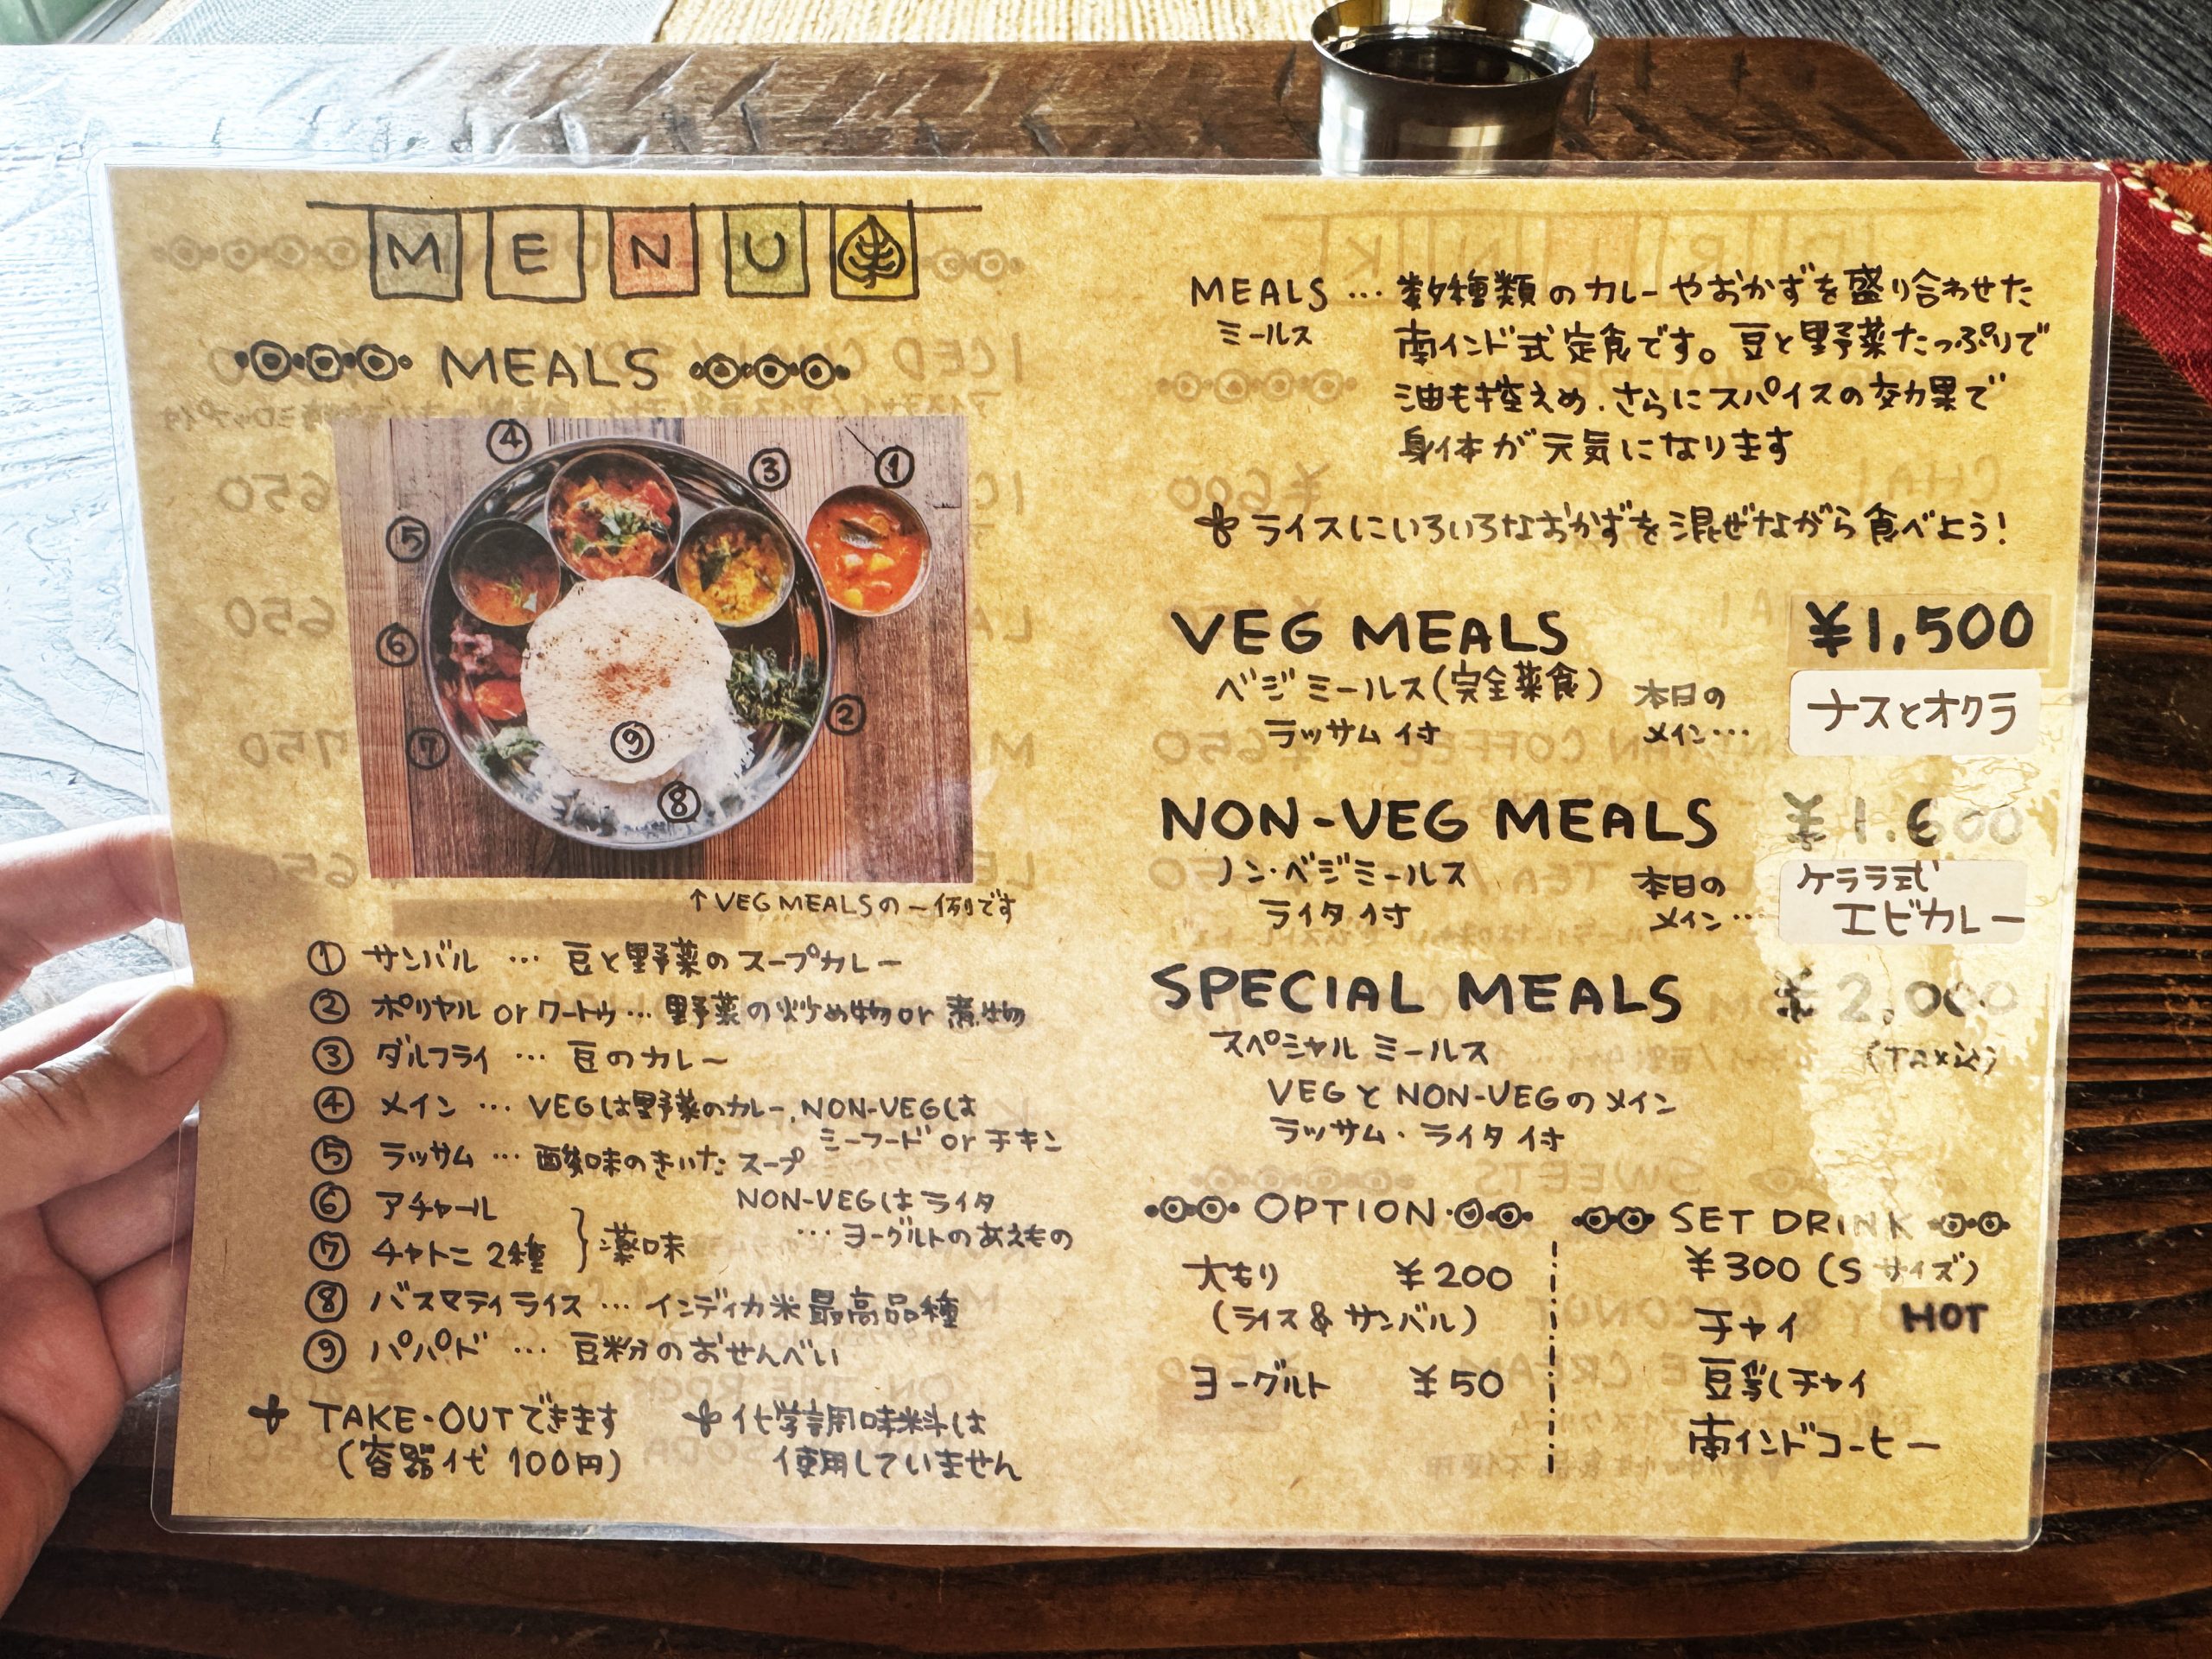 MENU
MEALS
④
③
①
⑤
⑥
②
⑦
⑨
⑧
↑VEG MEALSの一例です
① サンバル … 豆と野菜のスープカレー
② ポリヤル or クートゥ… 野菜の炒め物or 煮物
③ ダルフライ … 豆のカレー
④ メイン … VEGは野菜のカレー、NON-VEGは
シーフード or チキン
⑤ ラッサム … 酸味のきいたスープ
NON-VEGは ライタ
… ヨーグルトのあえもの
⑥ アチャール
⑦ チャトニ 2種 } 薬味
⑧ バスマティライス … インディカ米最高品種
⑨ パパド … 豆粉のおせんべい
TAKE-OUTできます
(容器代 100円)
化学調味料は
使用していません
MEALS … 数種類のカレーやおかずを盛り合わせた
ミールス 南インド式定食です。豆と野菜たっぷりで
油も控えめ、さらにスパイスの効果で
身体が元気になります
ライスにいろいろなおかずを混ぜながら食べよう!
VEG MEALS ¥1,500
ベジミールス(完全菜食) 本日の
ラッサム付 メイン… ナスとオクラ
NON-VEG MEALS ¥1,600
ノン・ベジミールス 本日の
ライタ付 メイン… ケララ式
エビカレー
SPECIAL MEALS ¥2,000
スペシャルミールス (Tax込)
VEGとNON-VEGのメイン
ラッサム・ライタ付
OPTION
大もり ¥200
(ライス&サンバル)
ヨーグルト ¥50
SET DRINK
¥300 (Sサイズ)
チャイ HOT
豆乳チャイ
南インドコーヒー